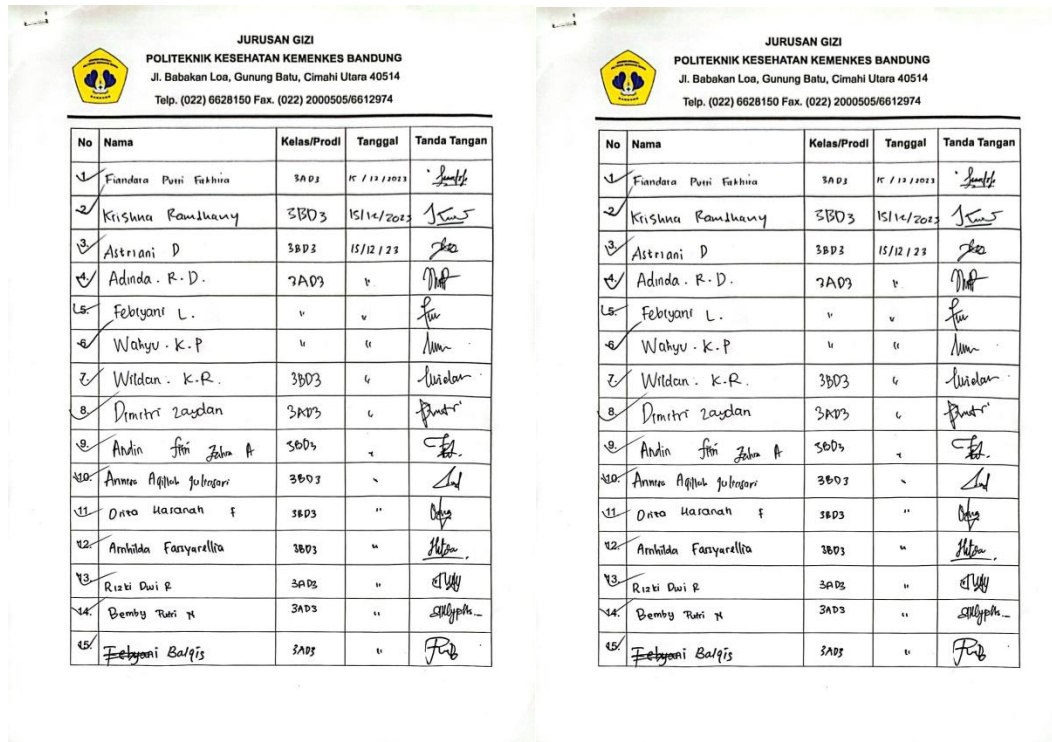 JURUSAN GIZI
POLITEKNIK KESEHATAN KEMENKES BANDUNG
Jl. Babakan Loa, Gunung Batu, Cimahi Utara 40514
Telp. (022) 6628150 Fax. (022) 2000505/6612974
No Nama Kelas/Prodi Tanggal Tanda Tangan
1 Fiandara Putri Fakhira 3AD3 15 / 12 / 2023
2 Krishna Ramdhany 3BD3 15/12/2023
3. Astriani D 3BD3 15/12/23
4. Adinda. R. D. 3AD3 "
5. Febryani L. " "
6. Wahyu. K. P " "
7. Wildan. K.R. 3BD3 "
8. Dimitri Zaydan 3AD3 "
9. Andin fitri Zahra A 3BD3 "
10. 3BD3 "
11. Hasanah F 3BD3 "
12. Arnhilda Farsyarellia 3BD3 "
13. Rizki Dwi R 3AD3 "
14. Bemby Putri N 3AD3 "
15. Balqis 3AD3 "
JURUSAN GIZI
POLITEKNIK KESEHATAN KEMENKES BANDUNG
Jl. Babakan Loa, Gunung Batu, Cimahi Utara 40514
Telp. (022) 6628150 Fax. (022) 2000505/6612974
No Nama Kelas/Prodi Tanggal Tanda Tangan
1 Fiandara Putri Fakhira 3AD3 15 / 12 / 2023
2 Krishna Ramdhany 3BD3 15/12/2023
3. Astriani D 3BD3 15/12/23
4. Adinda. R. D. 3AD3 "
5. Febryani L. " "
6. Wahyu. K. P " "
7. Wildan. K.R. 3BD3 "
8. Dimitri Zaydan 3AD3 "
9. Andin fitri Zahra A 3BD3 "
10. 3BD3 "
11. Hasanah F 3BD3 "
12. Arnhilda Farsyarellia 3BD3 "
13. Rizki Dwi R 3AD3 "
14. Bemby Putri N 3AD3 "
15. Balqis 3AD3 "